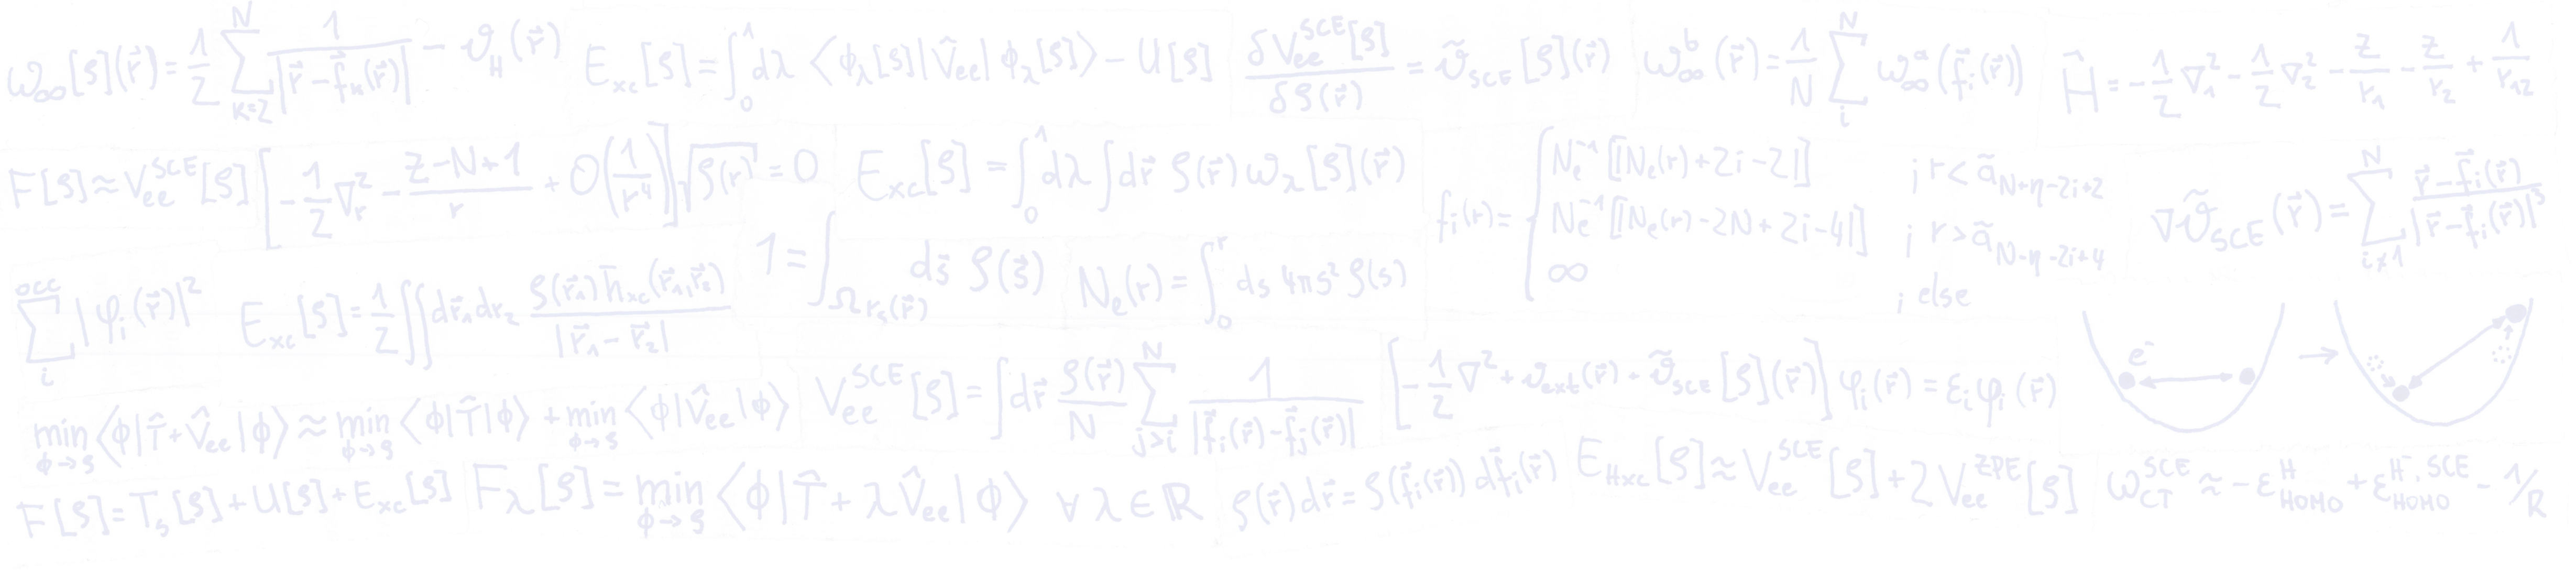 ω_∞[ρ](r⃗) = 1/2 ∑_{k=2}^{N} 1/|r⃗ - f⃗_k(r⃗)| - v_H(r⃗)
E_xc[ρ] = ∫_0^1 dλ ⟨ϕ_λ[ρ]|V̂_ee|ϕ_λ[ρ]⟩ - U[ρ]
δV_ee^SCE[ρ]/δρ(r⃗) = ṽ_SCE[ρ](r⃗)
ω_∞^b(r⃗) = 1/N ∑_i^N ω_∞^a(f⃗_i(r⃗))
Ĥ = -1/2 ∇_1^2 - 1/2 ∇_2^2 - Z/r_1 - Z/r_2 + 1/r_12
F[ρ] ≈ V_ee^SCE[ρ]
[-1/2 ∇_r^2 - (Z-N+1)/r + O(1/r^4)] √ρ(r) = 0
E_xc[ρ] = ∫_0^1 dλ ∫dr⃗ ρ(r⃗) ω_λ[ρ](r⃗)
f_i(r) = {
N_e^-1[|N_e(r)+2i-2|] ; r < ã_{N+η-2i+2}
N_e^-1[|N_e(r)-2N+2i-4|] ; r > ã_{N-η-2i+4}
∞ ; else
∇ṽ_SCE(r⃗) = ∑_{i≠1}^{N} (r⃗ - f⃗_i(r⃗))/|r⃗ - f⃗_i(r⃗)|^3
∑_i^occ |φ_i(r⃗)|^2
E_xc[ρ] = 1/2 ∫∫dr⃗_1dr_2 ρ(r⃗_1)h̄_xc(r⃗_1,r⃗_2)/|r⃗_1 - r⃗_2|
1 = ∫_{Ω r_s(r⃗)} ds⃗ ρ(s⃗)
N_e(r) = ∫_0^r ds 4πs^2 ρ(s)
e^-
min_{ϕ→ρ}⟨ϕ|T̂+V̂_ee|ϕ⟩ ≈ min_{ϕ→ρ}⟨ϕ|T̂|ϕ⟩ + min_{ϕ→ρ}⟨ϕ|V̂_ee|ϕ⟩
V_ee^SCE[ρ] = ∫dr⃗ ρ(r⃗)/N ∑_{j>i}^{N} 1/|f⃗_i(r⃗) - f⃗_j(r⃗)|
[-1/2 ∇^2 + v_ext(r⃗) - ṽ_SCE[ρ](r⃗)] φ_i(r⃗) = ε_i φ_i(r⃗)
F[ρ] = T_s[ρ] + U[ρ] + E_xc[ρ]
F_λ[ρ] = min_{ϕ→ρ} ⟨ϕ|T̂ + λV̂_ee|ϕ⟩ ∀ λ ∈ ℝ
ρ(r⃗) dr⃗ = ρ(f⃗_i(r⃗)) df⃗_i(r⃗)
E_Hxc[ρ] ≈ V_ee^SCE[ρ] + 2 V_ee^ZPE[ρ]
ω_CT^SCE ≈ -ε_HOMO^H + ε_HOMO^{H^-,SCE} - 1/R